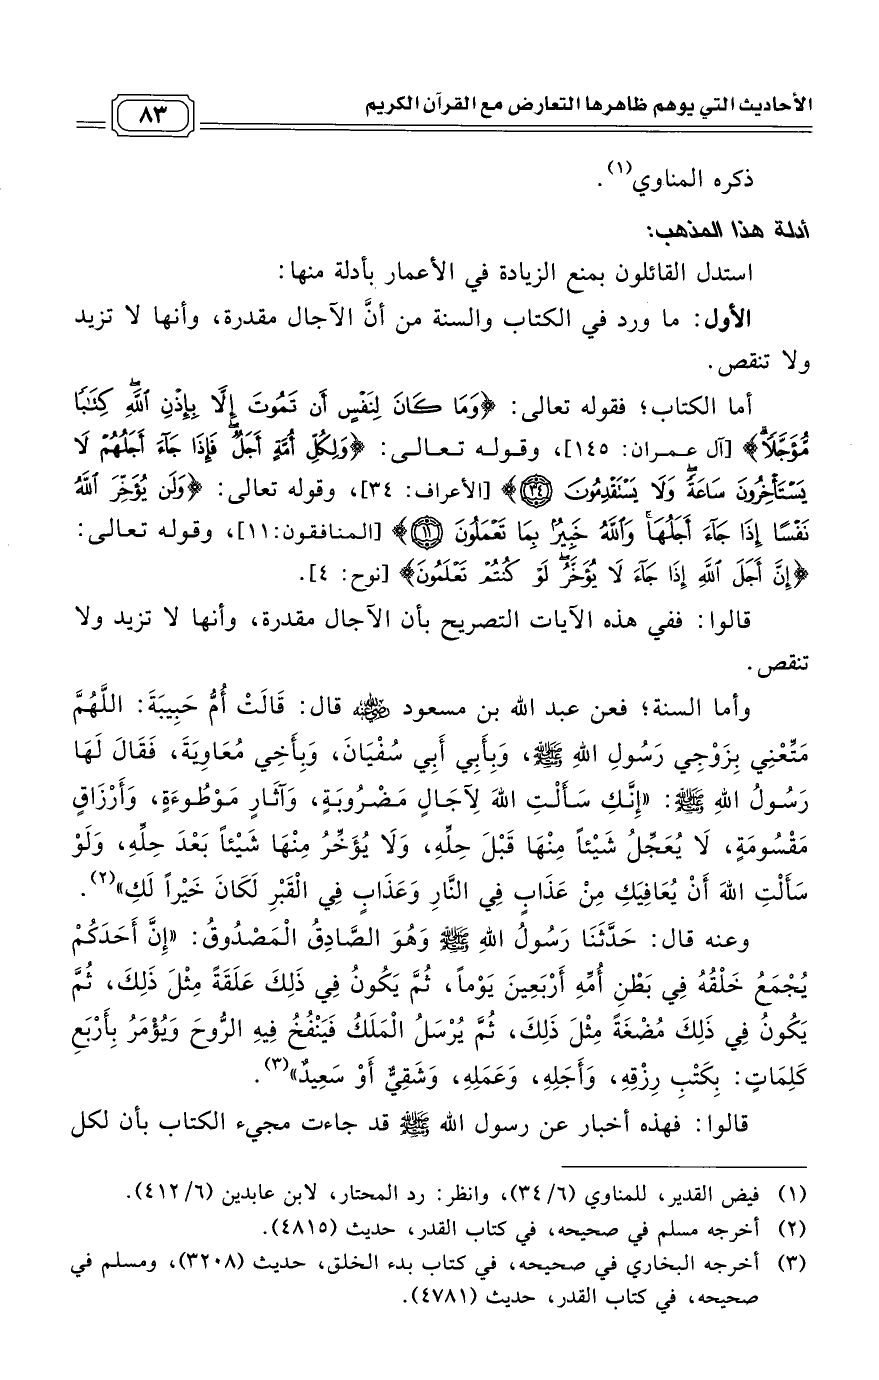 الأحاديث التي يوهم ظاهرها التعارض مع القرآن الكريم
٨٣
ذكره المناوي(١).
أدلة هذا المذهب:
استدل القائلون بمنع الزيادة في الأعمار بأدلة منها:
الأول: ما ورد في الكتاب والسنة من أنَّ الآجال مقدرة، وأنها لا تزيد
ولا تنقص.
أما الكتاب؛ فقوله تعالى: ﴿وَمَا كَانَ لِنَفْسٍ أَن تَمُوتَ إِلَّا بِإِذْنِ ٱللَّهِ كِتَٰبًا
مُّؤَجَّلًا﴾ [آل عمران: ١٤٥]، وقوله تعالى: ﴿وَلِكُلِّ أُمَّةٍ أَجَلٌ فَإِذَا جَآءَ أَجَلُهُمْ لَا
يَسْتَأْخِرُونَ سَاعَةً وَلَا يَسْتَقْدِمُونَ ٣٤﴾ [الأعراف: ٣٤]، وقوله تعالى: ﴿وَلَن يُؤَخِّرَ ٱللَّهُ
نَفْسًا إِذَا جَآءَ أَجَلُهَا وَٱللَّهُ خَبِيرٌۢ بِمَا تَعْمَلُونَ ١١﴾ [المنافقون:١١]، وقوله تعالى:
﴿إِنَّ أَجَلَ ٱللَّهِ إِذَا جَآءَ لَا يُؤَخَّرُ لَوْ كُنتُمْ تَعْلَمُونَ﴾ [نوح: ٤].
قالوا: ففي هذه الآيات التصريح بأن الآجال مقدرة، وأنها لا تزيد ولا
تنقص.
وأما السنة؛ فعن عبد الله بن مسعود رضي الله عنه قال: قَالَتْ أُمُّ حَبِيبَةَ: اللَّهُمَّ
مَتِّعْنِي بِزَوْجِي رَسُولِ اللهِ ﷺ، وَبِأَبِي أَبِي سُفْيَانَ، وَبِأَخِي مُعَاوِيَةَ، فَقَالَ لَهَا
رَسُولُ اللهِ ﷺ: «إِنَّكِ سَأَلْتِ اللهَ لِآجَالٍ مَضْرُوبَةٍ، وَآثَارٍ مَوْطُوءَةٍ، وَأَرْزَاقٍ
مَقْسُومَةٍ، لَا يُعَجِّلُ شَيْئاً مِنْهَا قَبْلَ حِلِّهِ، وَلَا يُؤَخِّرُ مِنْهَا شَيْئاً بَعْدَ حِلِّهِ، وَلَوْ
سَأَلْتِ اللهَ أَنْ يُعَافِيَكِ مِنْ عَذَابٍ فِي النَّارِ وَعَذَابٍ فِي الْقَبْرِ لَكَانَ خَيْراً لَكِ»(٢).
وعنه قال: حَدَّثَنَا رَسُولُ اللهِ ﷺ وَهُوَ الصَّادِقُ الْمَصْدُوقُ: «إِنَّ أَحَدَكُمْ
يُجْمَعُ خَلْقُهُ فِي بَطْنِ أُمِّهِ أَرْبَعِينَ يَوْماً، ثُمَّ يَكُونُ فِي ذَلِكَ عَلَقَةً مِثْلَ ذَلِكَ، ثُمَّ
يَكُونُ فِي ذَلِكَ مُضْغَةً مِثْلَ ذَلِكَ، ثُمَّ يُرْسَلُ الْمَلَكُ فَيَنْفُخُ فِيهِ الرُّوحَ وَيُؤْمَرُ بِأَرْبَعِ
كَلِمَاتٍ: بِكَتْبِ رِزْقِهِ، وَأَجَلِهِ، وَعَمَلِهِ، وَشَقِيٌّ أَوْ سَعِيدٌ»(٣).
قالوا: فهذه أخبار عن رسول الله ﷺ قد جاءت مجيء الكتاب بأن لكل
(١) فيض القدير، للمناوي (٣٤/٦)، وانظر: رد المحتار، لابن عابدين (٤١٢/٦).
(٢) أخرجه مسلم في صحيحه، في كتاب القدر، حديث (٤٨١٥).
(٣) أخرجه البخاري في صحيحه، في كتاب بدء الخلق، حديث (٣٢٠٨)، ومسلم في
صحيحه، في كتاب القدر، حديث (٤٧٨١).